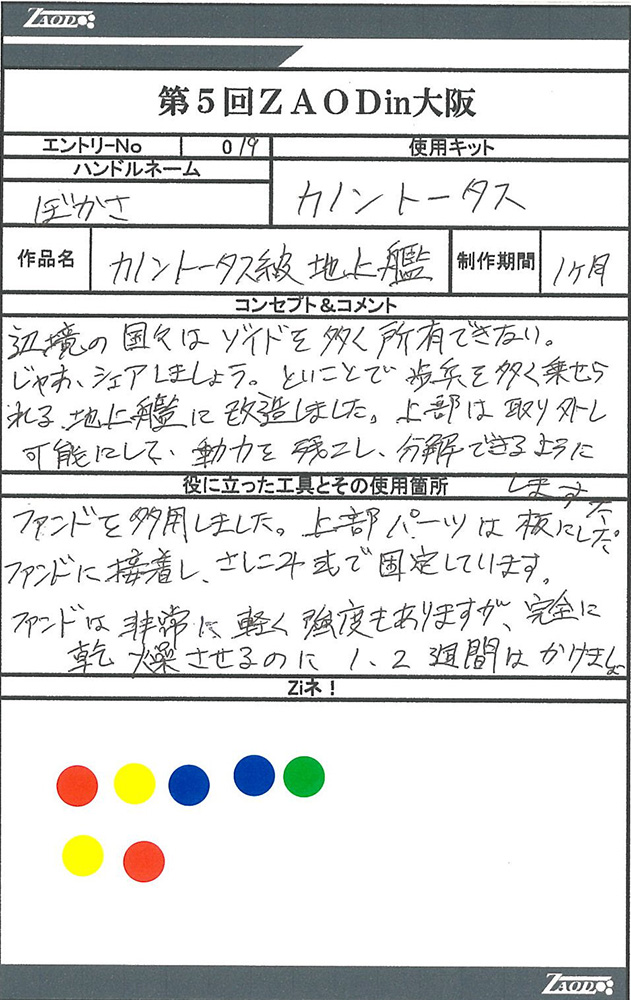 ZAOD
第5回ZAODin大阪
エントリーNo 019 使用キット
ハンドルネーム
ぼかさ カノントータス
作品名 カノントータス級 地上艦 制作期間 1ヶ月
コンセプト&コメント
辺境の国々はゾイドを多く所有できない。
じゃあ、シェアしましょう。といことで歩兵を多く乗せら
れる地上艦に改造しました。上部は取り外し
可能にして、動力を残こし、分解できるように
しました
役に立った工具とその使用箇所
ファンドを多用しました。上部パーツは板にした
ファンドに接着し、さしこみ式で固定しています。
ファンドは非常に軽く強度もありますが、完全に
乾燥させるのに1、2週間はかけましょ
Ziネ!
ZAOD